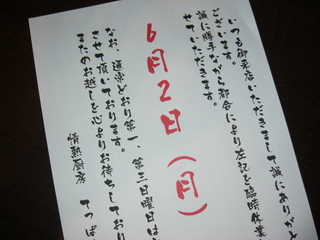 いつも御来店いただきまして誠にありがと
ございます。
誠に勝手ながら都合により左記を臨時休業
せていただきます。
6月2日(月)
なお、通常どおり第一、第三日曜日は
させて頂いております。
またのお越しを心よりお待ちしており
情熱厨房 てつぱ